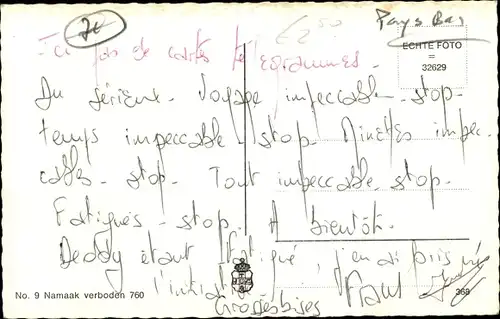 70
€2,50
Pays Bas
ECHTE FOTO
=
32629
Ici pas de cartes télégrammes.
Du sérieux. Voyage impeccable. stop.
temps impeccable. stop. Minettes impec-
cables. stop. Tout impeccable. stop.
Fatigués. stop. A bientôt.
Deddy étant fatigué, j'en ai pris
l'initiative
Grosses bises
Paul
No. 9 Namaak verboden 760
368